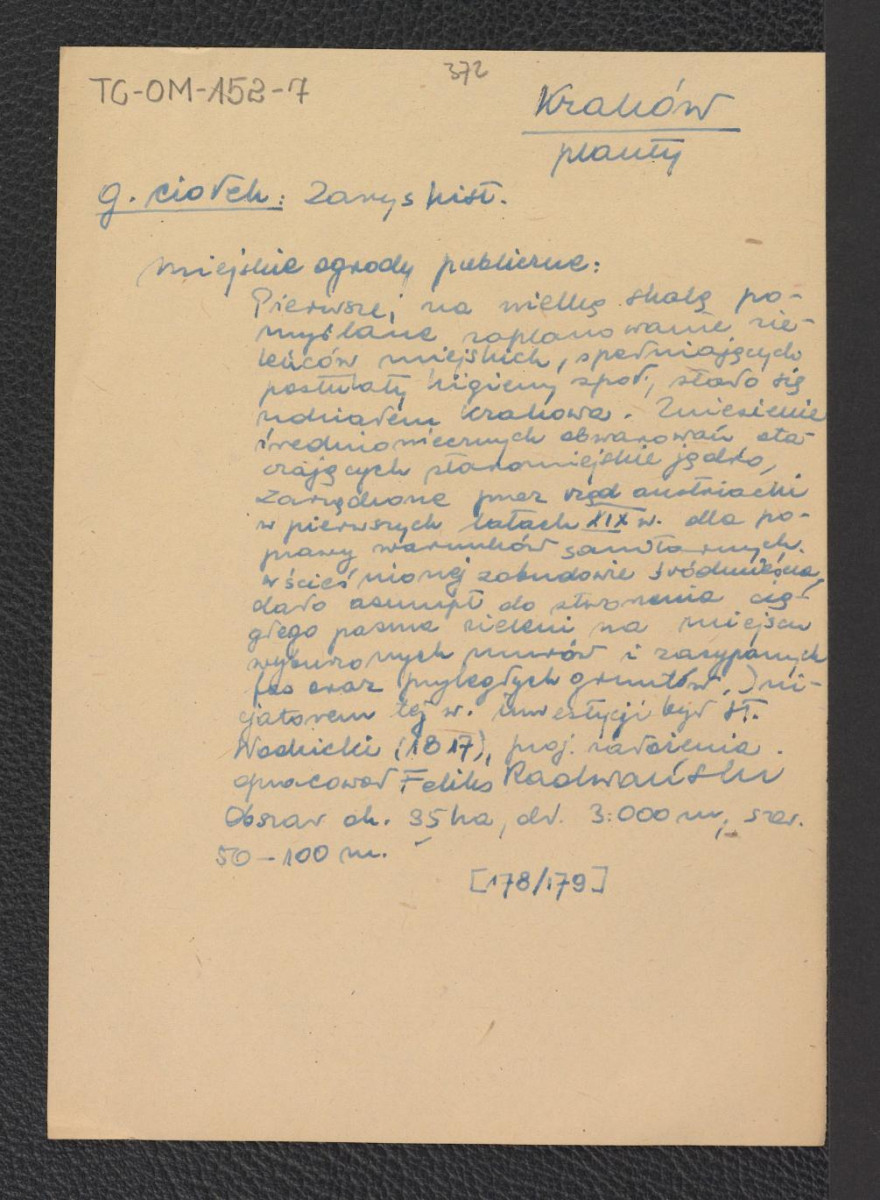 TG-OM-152-7
372
Kraków
planty
G. Ciołek: Zarys hist.
Miejskie ogrody publiczne:
Pierwsze, na wielką skalę po-
myślane zaplanowanie zie-
leńców miejskich, spełniających
postulaty higieny społ., stało się
udziałem Krakowa. Zniesienie
średniowiecznych obwarowań ota-
czających staromiejskie jądro,
zarządzone przez rząd austriacki
w pierwszych latach XIX w. dla po-
prawy warunków sanitarnych.
w ścieśnionej zabudowie śródmieścia,
dało asumpt do stworzenia cią-
głego pasma zieleni na miejscu
wyburzonych murów i zasypanych
fos oraz przyległych gruntów. Ini-
cjatorem tej w. inwestycji był St.
Wodzicki (1817), proj. założenia.
opracował Feliks Radwański
Obszar ok. 35 ha, dł. 3.000 m, szer.
50-100 m.
[178/179]